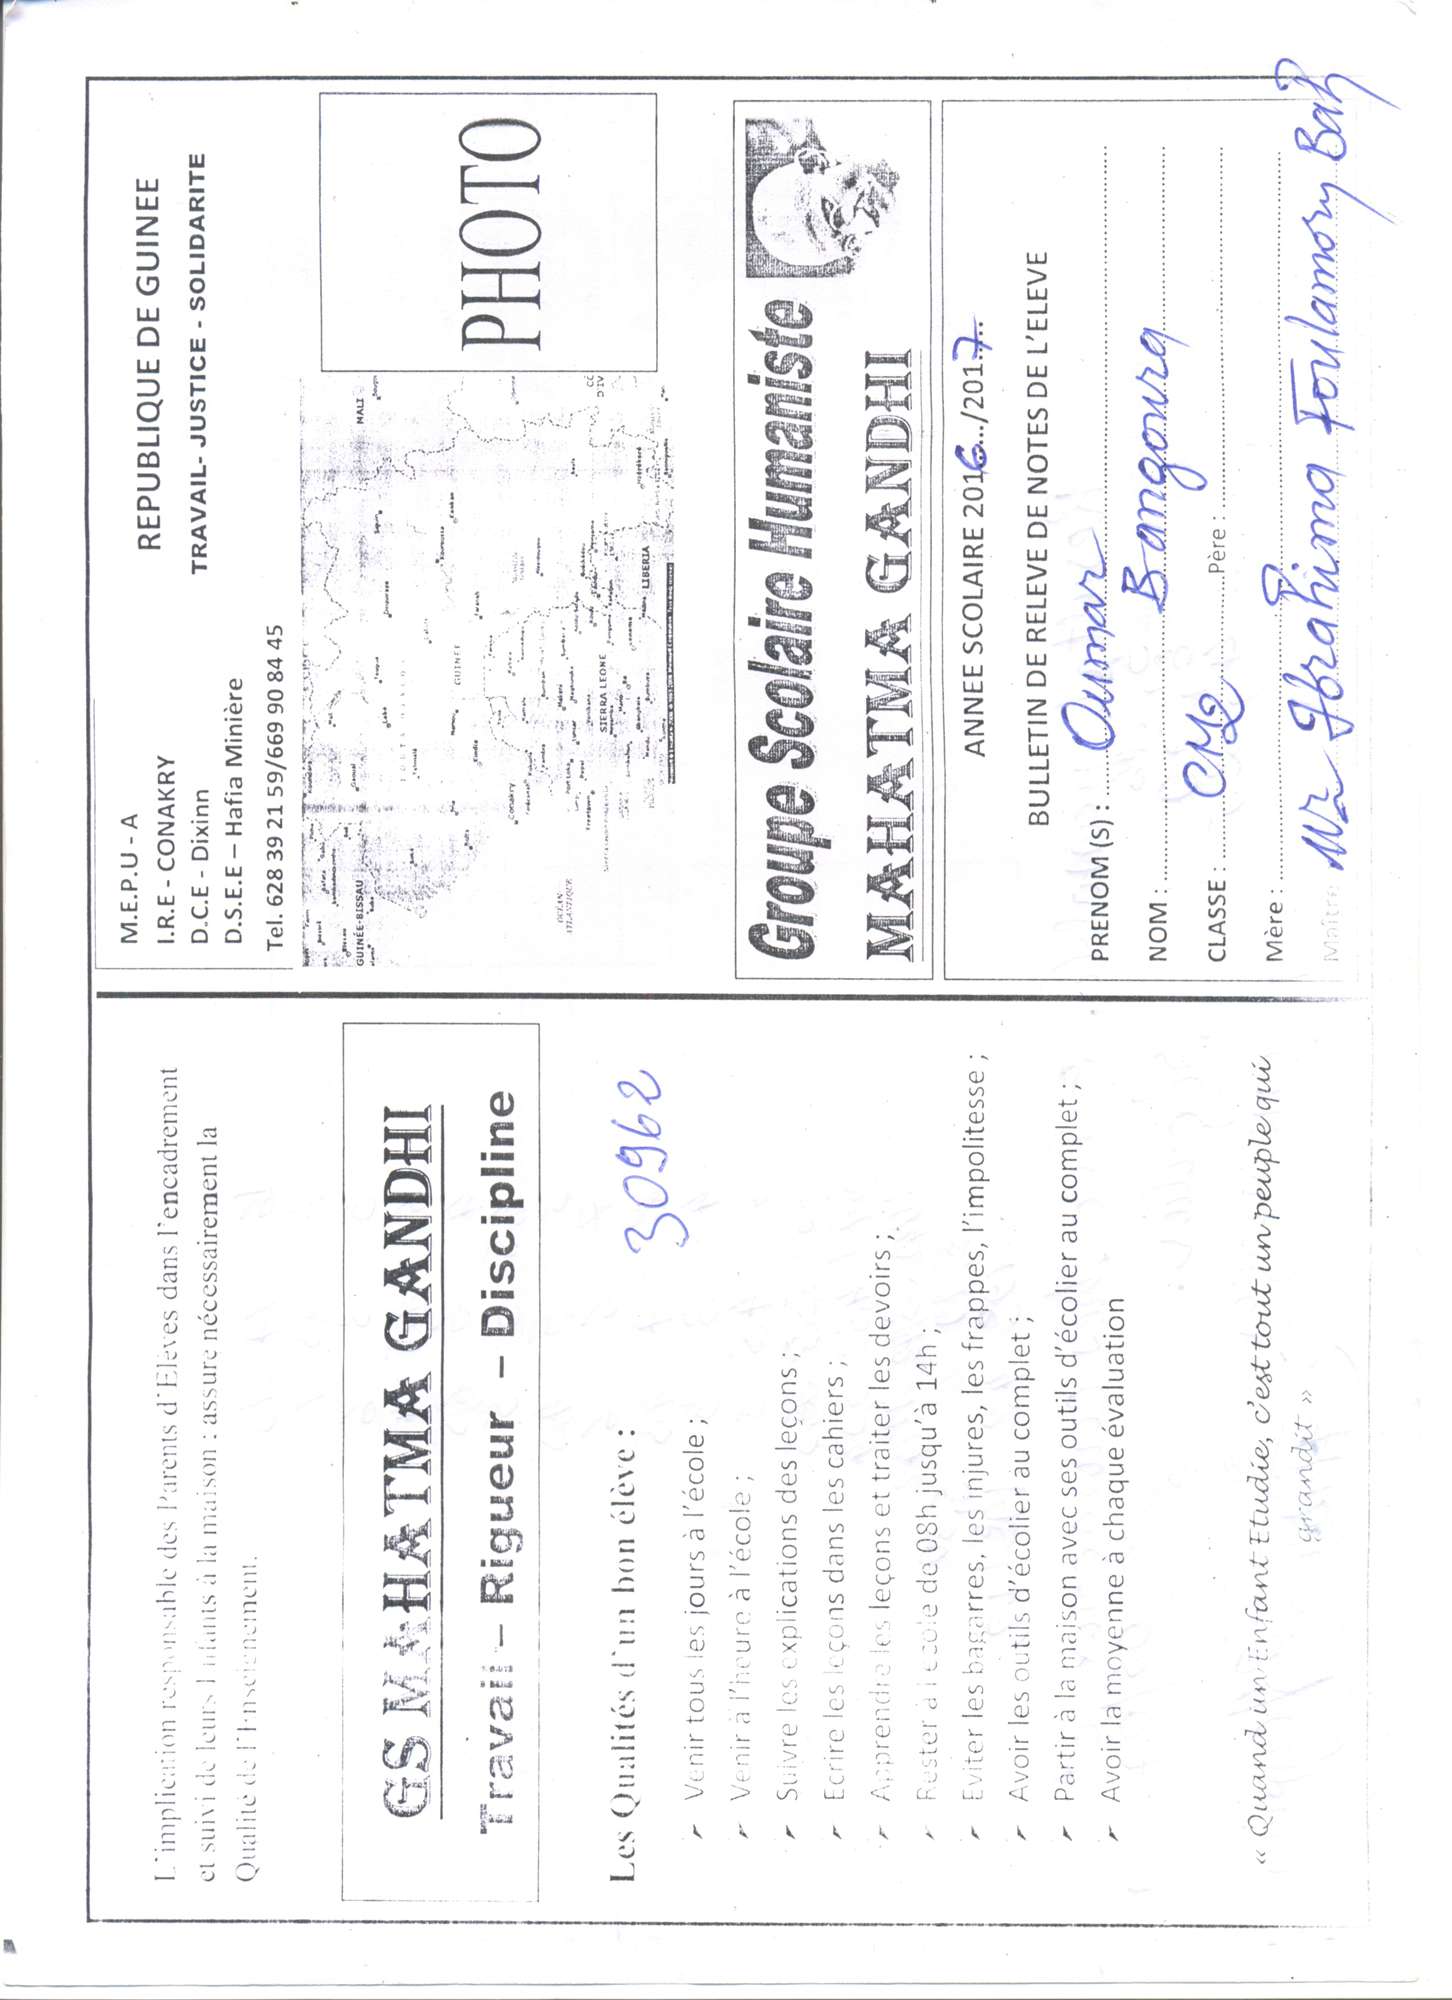 L'implication responsable des Parents d'Elèves dans l'encadrement
et suivi de leurs Enfants à la maison : assure nécessairement la
Qualité de l'Enseignement.
GS MAHATMA GANDHI
Travail – Rigueur – Discipline
30962
Les Qualités d'un bon élève :
Venir tous les jours à l'école ;
Venir à l'heure à l'école ;
Suivre les explications des leçons ;
Ecrire les leçons dans les cahiers ;
Apprendre les leçons et traiter les devoirs ;
Rester à l'école de 08h jusqu'à 14h ;
Eviter les bagarres, les injures, les frappes, l'impolitesse ;
Avoir les outils d'écolier au complet ;
Partir à la maison avec ses outils d'écolier au complet ;
Avoir la moyenne à chaque évaluation
« Quand un Enfant Etudie, c'est tout un peuple qui
grandit »
M.E.P.U - A
REPUBLIQUE DE GUINEE
I.R.E - CONAKRY
TRAVAIL- JUSTICE - SOLIDARITE
D.C.E - Dixinn
D.S.E.E – Hafia Minière
Tel. 628 39 21 59/669 90 84 45
MALI
GUINÉE-BISSAU
GUINÉE
Conakry
SIERRA LEONE
LIBERIA
OCÉAN
ATLANTIQUE
PHOTO
Groupe Scolaire Humaniste
MAHATMA GANDHI
ANNEE SCOLAIRE 2016.../2017...
BULLETIN DE RELEVE DE NOTES DE L'ELEVE
PRENOM (S) : Oumar
NOM : Bangoura
CLASSE : CM2 Père :
Mère :
Maître Mr Ibrahima Foulamory Bah